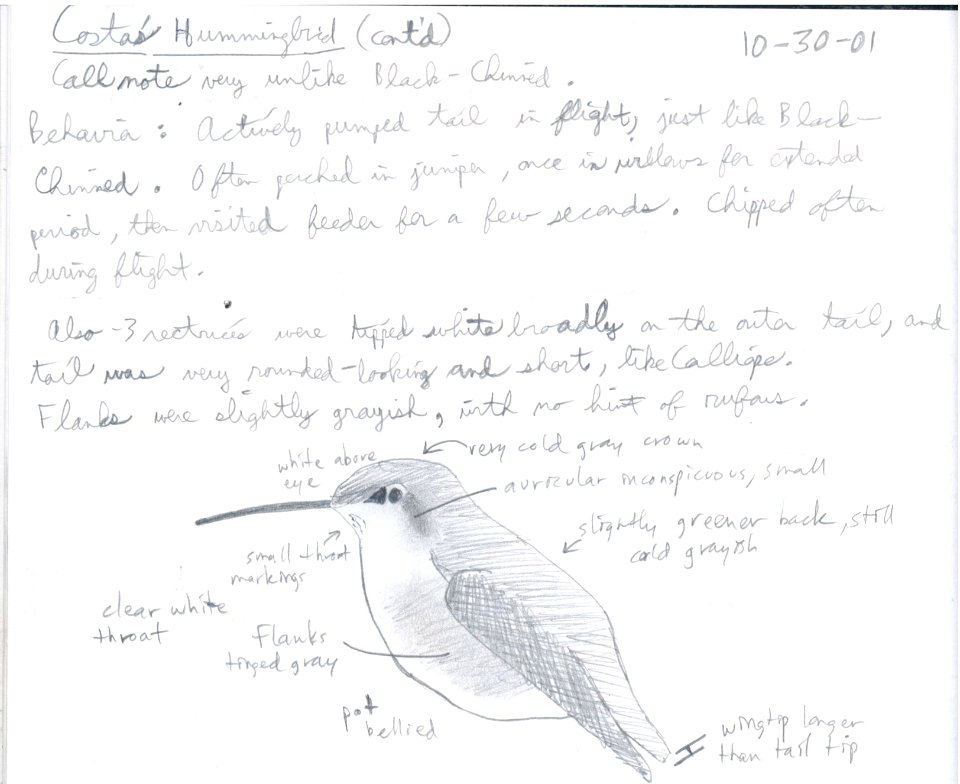 Costa's Hummingbird (cont'd)
10-30-01
Call note very unlike Black-Chinned.
Behavior: Actively pumped tail in flight, just like Black-
Chinned. Often perched in juniper, once in willows for extended
period, then visited feeder for a few seconds. Chipped often
during flight.
Also -3 rectrices were tipped white broadly on the outer tail, and
tail was very rounded-looking and short, like Calliope.
Flanks were slightly grayish, with no hint of rufous.
very cold gray crown
white above
eye
auricular inconspicuous, small
slightly greener back, still
cold grayish
small throat
markings
clear white
throat
Flanks
tinged gray
pot
bellied
wingtip longer
than tail tip